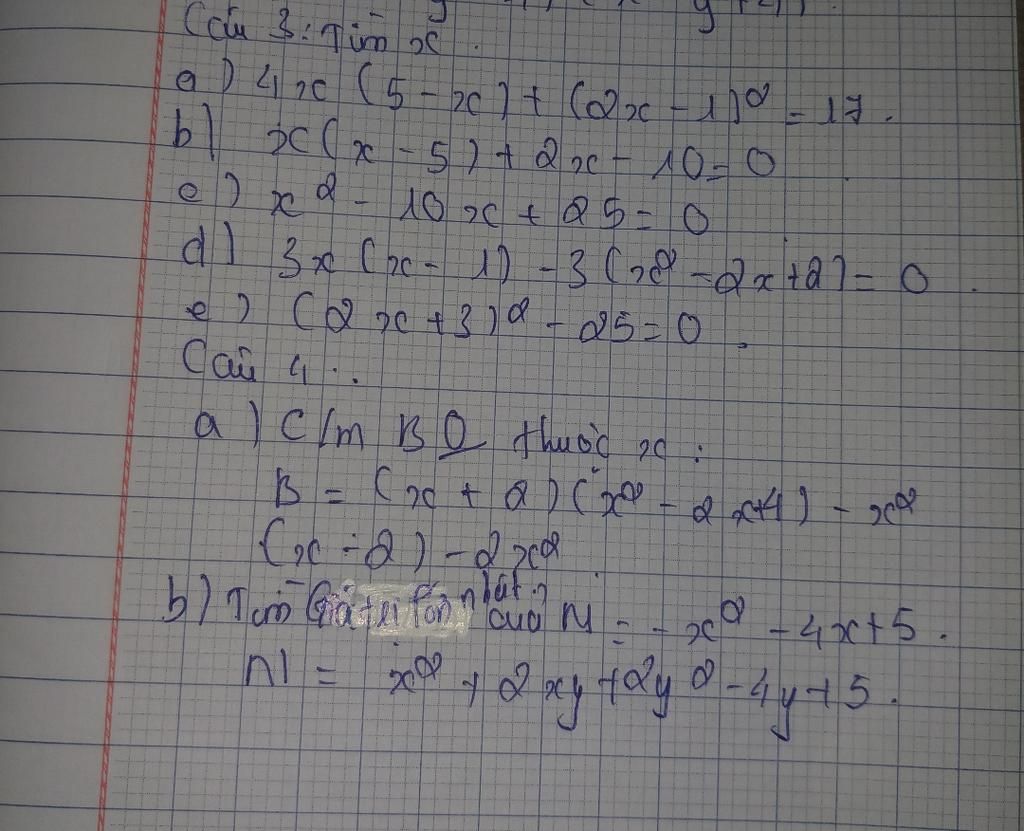 Câu 3: Tìm x.
a) 4x (5 - x) + (2x - 1)² = 17.
b) x(x - 5) + 2x - 10 = 0
c) x² - 10x + 25 = 0
d) 3x (x - 1) - 3 (x² - 2x + 2) = 0.
e) (2x + 3)² - 25 = 0.
Câu 4:
a) C/m BQ thuộc x:
B = (x + 2)(x² - 2x + 4) - x²
(x - 2) - 2x²
b) Tìm Giá trị lớn nhất của N = - x² - 4x + 5.
M = x² + 2xy + 2y² - 4y + 5.